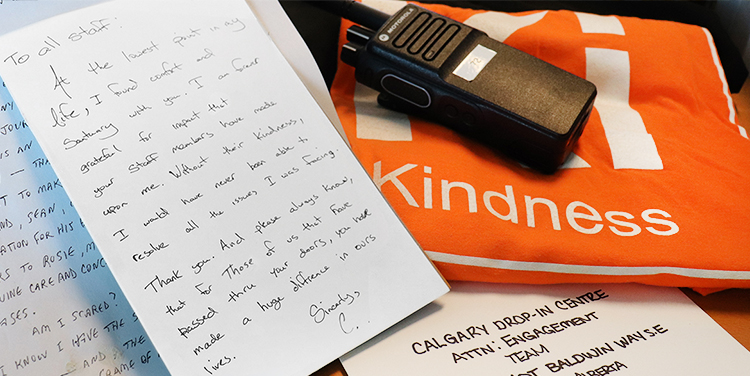 To all staff:
At the lowest point in my
life, I found comfort and
Sanctuary with you. I am forever
grateful for impact that
your staff members have made
upon me. Without their kindness,
I would have never been able to
resolve all the issues I was facing.
Thank you. And please always know,
that for those of us that have
passed thru your doors, you have
made a huge difference in ours
lives.
Sincerely,
C.
JOUR
IS AN
THA
T TO MAK
ND, SEAN,
ATION FOR HIS
RS TO ROSIE, M
UINE CARE AND CONC
RSES.
AM I SCARED?
I KNOW I HAVE THE S
AND THE
FRAME OF
MOTOROLA
72
Ki
Kindness
CALGARY DROP-IN CENTRE
ATTN: ENGAGEMENT
TEAM
BALDWIN WAY S.E
ALBERTA